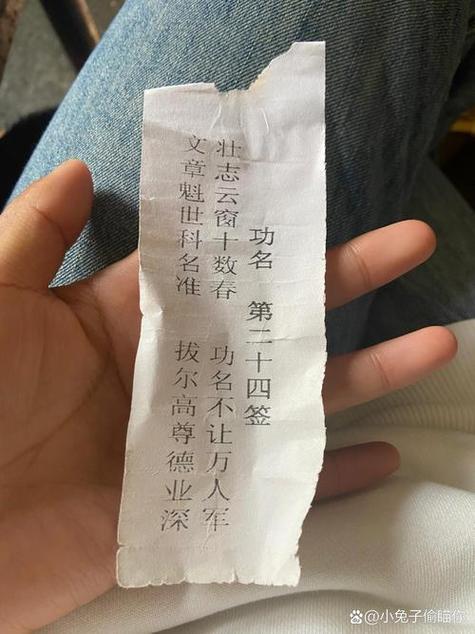 功名 第二十四签
壮志云窗十数春 功名不让万人军
文章魁世科名准 拔尔高尊德业深
@小兔子偷瞄你